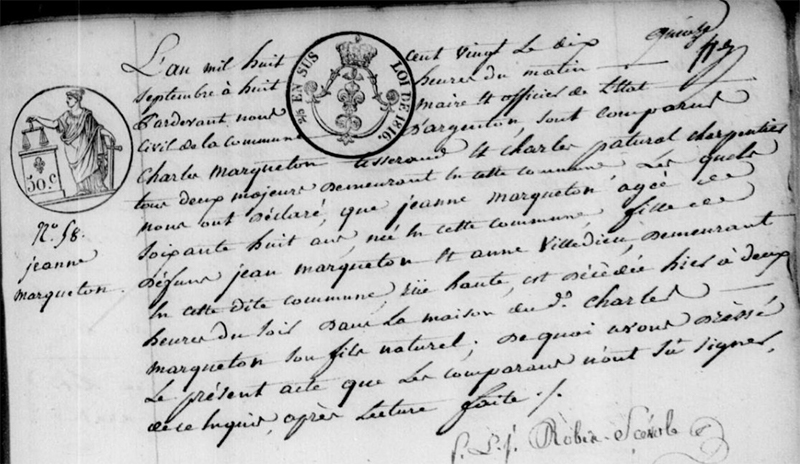 quinze
L'an mil huit cent vingt le dix
septembre à huit heures du matin
Pardevant nous maire et officier de l'état
civil de la commune d'argenton sont comparus
Charles marqueton tisserand et Charles patural charpentier
tous deux majeurs demeurant en cette commune Les quels
nous ont déclaré, que jeanne marqueton agée de
soixante huit ans, née en cette commune, fille de
défuns jean marqueton et anne Villedieu, demeurant
en cette dite commune, rüe haute, est décédée hier à deux
heures du soir dans La maison du d.t Charles
marqueton son fils naturel; de quoi avons dressé
Le présent acte que Les comparans n'ont sû signer,
de ce enquis, après Lecture faite ./.
Robin-Scévole
N.o 58.
jeanne
marqueton.
50.c
EN SUS
LOI DE 1816.